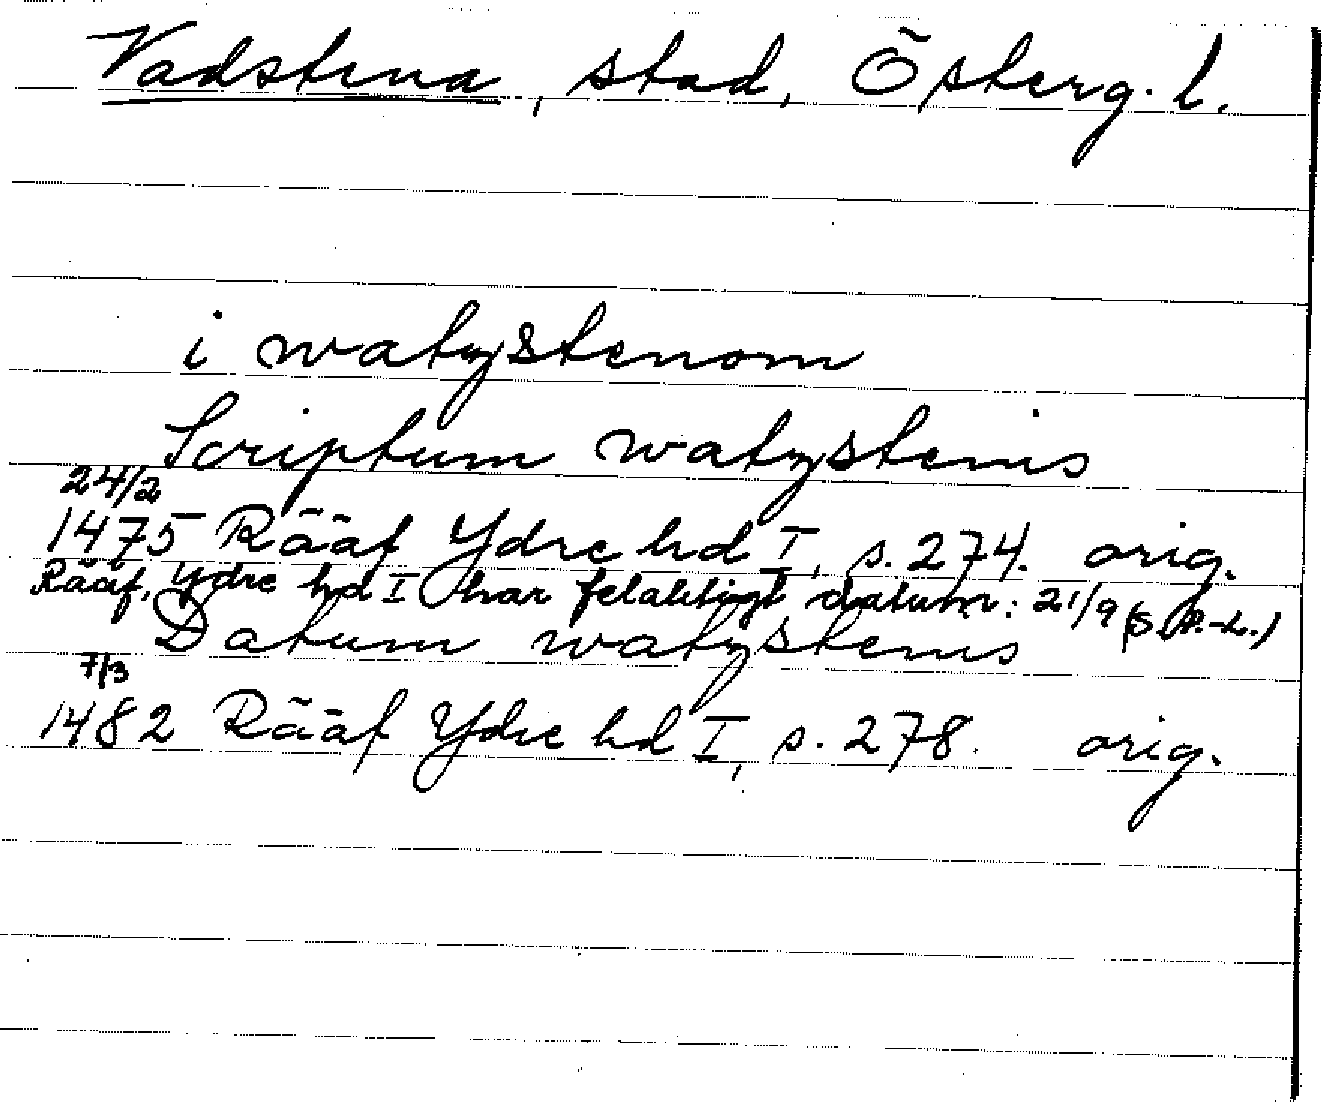 Vadstena, stad, Österg. l.
i watzstenom
Scriptum watzstenis
24/2
1475 Rääf Ydre hd I, s. 274. orig.
Rääf, Ydre hd I har felaktigt datum: 21/9 (S. P.-L.)
Datum watzstenis
7/3
1482 Rääf Ydre hd I, s. 278. orig.